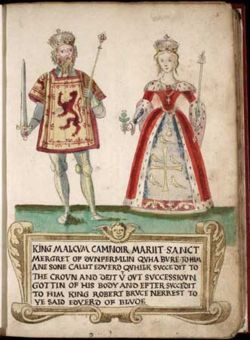 KING MALCVM CAMNOIR MARIIT SANCT
MERGRET OF DVNFERMLIN QVHA BVRE TO HIM
ANE SONE CALLIT EDVERD QVHILK SVCCEDIT TO
THE CROVN AND DEIT VOVT SVCCESSIOVN
GOTTIN OF HIS BODY AND EFTER SVCCEDIT
TO HIM KING ROBERT BRVCE NERREST TO
YE SAID EDVERD OF BLVDE